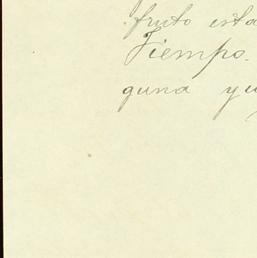 fruto esta
Tiempo.
guna yu